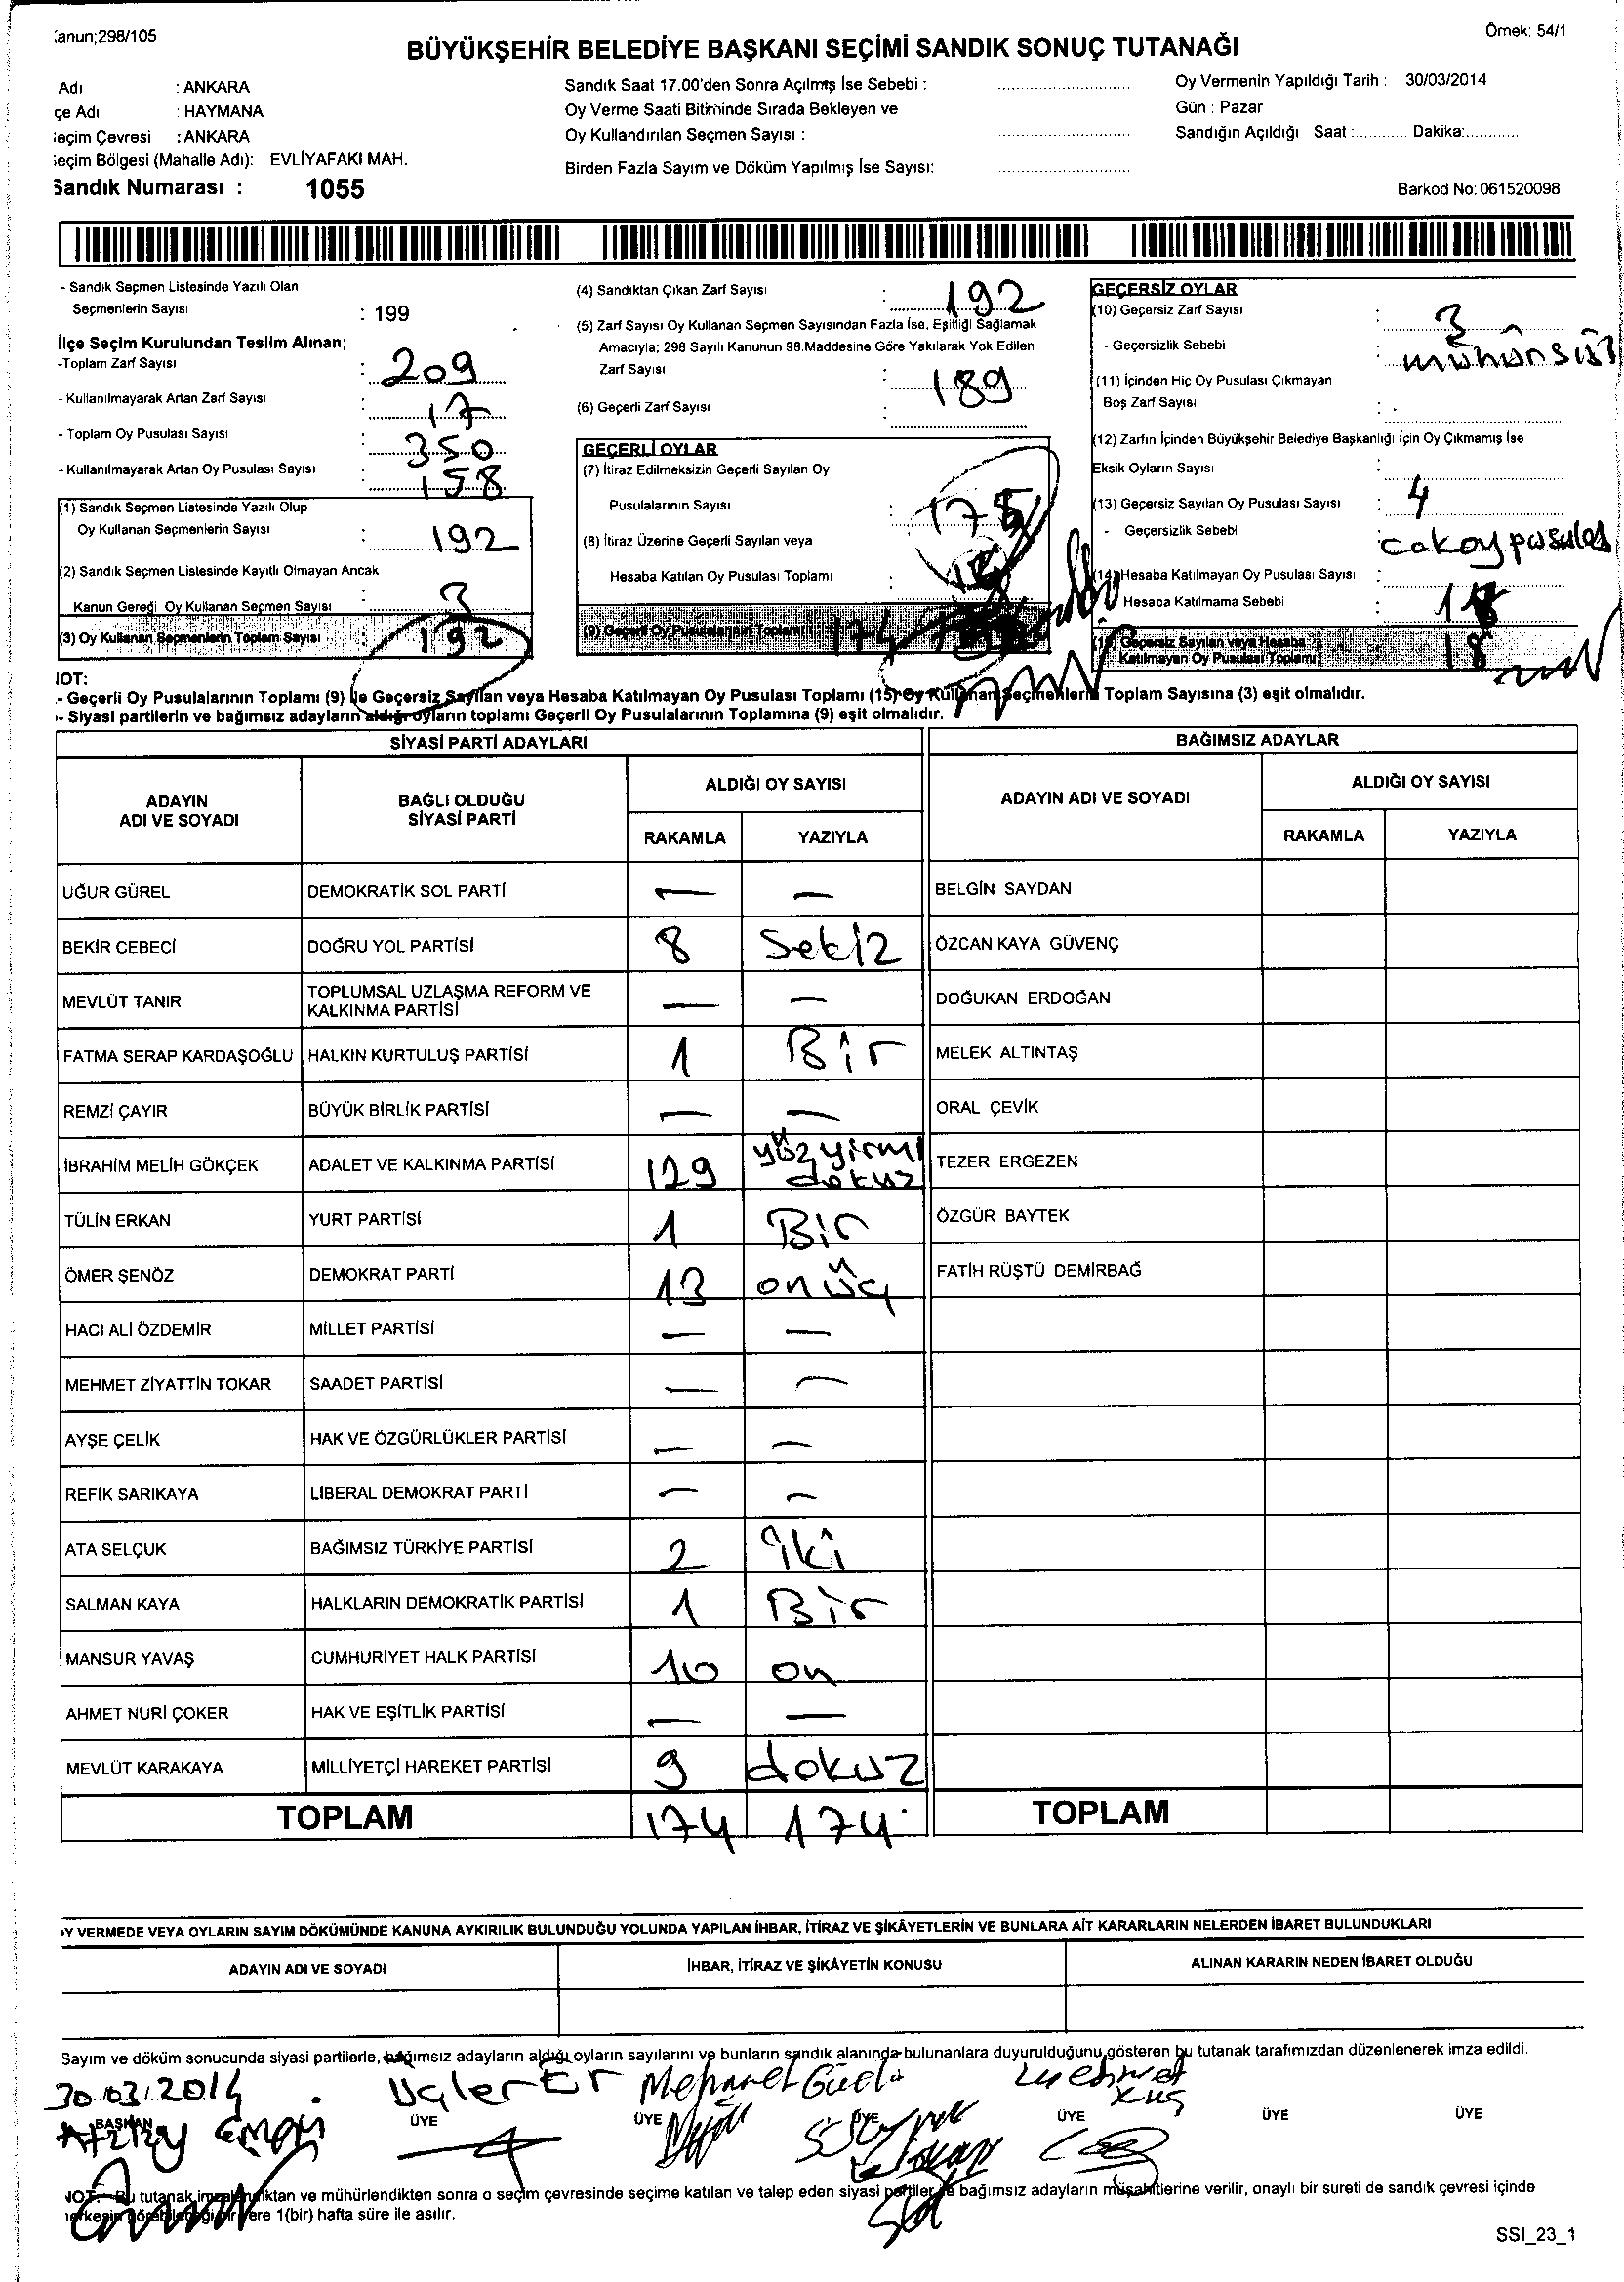 anun;298/105
Örnek: 54/1
BÜYÜKŞEHİR BELEDİYE BAŞKANI SEÇİMİ SANDIK SONUÇ TUTANAĞI
Adı : ANKARA
çe Adı : HAYMANA
eçim Çevresi : ANKARA
eçim Bölgesi (Mahalle Adı): EVLİYAFAKI MAH.
Sandık Numarası : 1055
Sandık Saat 17.00'den Sonra Açılmış İse Sebebi :
Oy Verme Saati Bitiminde Sırada Bekleyen ve
Oy Kullandırılan Seçmen Sayısı :
Birden Fazla Sayım ve Döküm Yapılmış İse Sayısı:
Oy Vermenin Yapıldığı Tarih : 30/03/2014
Gün : Pazar
Sandığın Açıldığı Saat :............ Dakika:............
Barkod No: 061520098
- Sandık Seçmen Listesinde Yazılı Olan
Seçmenlerin Sayısı : 199
İlçe Seçim Kurulundan Teslim Alınan;
-Toplam Zarf Sayısı : 209
- Kullanılmayarak Artan Zarf Sayısı : 17
- Toplam Oy Pusulası Sayısı : 350
- Kullanılmayarak Artan Oy Pusulası Sayısı : 158
(1) Sandık Seçmen Listesinde Yazılı Olup
Oy Kullanan Seçmenlerin Sayısı : 192
(2) Sandık Seçmen Listesinde Kayıtlı Olmayan Ancak
Kanun Gereği Oy Kullanan Seçmen Sayısı : 3
(3) Oy Kullanan Seçmenlerin Toplam Sayısı : 192
(4) Sandıktan Çıkan Zarf Sayısı : 192
(5) Zarf Sayısı Oy Kullanan Seçmen Sayısından Fazla İse, Eşitliği Sağlamak
Amacıyla; 298 Sayılı Kanunun 98.Maddesine Göre Yakılarak Yok Edilen
Zarf Sayısı : 189
(6) Geçerli Zarf Sayısı :
GEÇERLİ OYLAR
(7) İtiraz Edilmeksizin Geçerli Sayılan Oy
Pusulalarının Sayısı :
(8) İtiraz Üzerine Geçerli Sayılan veya
Hesaba Katılan Oy Pusulası Toplamı :
(9) Geçerli Oy Pusulalarının Toplamı 174
GEÇERSİZ OYLAR
(10) Geçersiz Zarf Sayısı : 3
- Geçersizlik Sebebi : mühürsüz
(11) İçinden Hiç Oy Pusulası Çıkmayan
Boş Zarf Sayısı :
(12) Zarfın İçinden Büyükşehir Belediye Başkanlığı İçin Oy Çıkmamış İse
Eksik Oyların Sayısı :
(13) Geçersiz Sayılan Oy Pusulası Sayısı : 4
- Geçersizlik Sebebi :
(14) Hesaba Katılmayan Oy Pusulası Sayısı :
Hesaba Katılmama Sebebi :
(15) Geçersiz Sayılan veya Hesaba
Katılmayan Oy Pusulası Toplamı 18
NOT:
- Geçerli Oy Pusulalarının Toplamı (9) ile Geçersiz Sayılan veya Hesaba Katılmayan Oy Pusulası Toplamı (15) Oy Kullanan Seçmenlerin Toplam Sayısına (3) eşit olmalıdır.
- Siyasi partilerin ve bağımsız adayların aldığı oyların toplamı Geçerli Oy Pusulalarının Toplamına (9) eşit olmalıdır.
SİYASİ PARTİ ADAYLARI BAĞIMSIZ ADAYLAR
ADAYIN ADI VE SOYADI BAĞLI OLDUĞU SİYASİ PARTİ ALDIĞI OY SAYISI ADAYIN ADI VE SOYADI ALDIĞI OY SAYISI
RAKAMLA YAZIYLA RAKAMLA YAZIYLA
UĞUR GÜREL DEMOKRATİK SOL PARTİ — — BELGİN SAYDAN
BEKİR CEBECİ DOĞRU YOL PARTİSİ 8 Sekiz ÖZCAN KAYA GÜVENÇ
MEVLÜT TANIR TOPLUMSAL UZLAŞMA REFORM VE KALKINMA PARTİSİ — — DOĞUKAN ERDOĞAN
FATMA SERAP KARDAŞOĞLU HALKIN KURTULUŞ PARTİSİ 1 Bir MELEK ALTINTAŞ
REMZİ ÇAYIR BÜYÜK BİRLİK PARTİSİ — — ORAL ÇEVİK
İBRAHİM MELİH GÖKÇEK ADALET VE KALKINMA PARTİSİ 129 yüzyirmi dokuz TEZER ERGEZEN
TÜLİN ERKAN YURT PARTİSİ 1 Bir ÖZGÜR BAYTEK
ÖMER ŞENÖZ DEMOKRAT PARTİ 13 onüç FATİH RÜŞTÜ DEMİRBAĞ
HACI ALİ ÖZDEMİR MİLLET PARTİSİ — —
MEHMET ZİYATTİN TOKAR SAADET PARTİSİ — —
AYŞE ÇELİK HAK VE ÖZGÜRLÜKLER PARTİSİ — —
REFİK SARIKAYA LİBERAL DEMOKRAT PARTİ — —
ATA SELÇUK BAĞIMSIZ TÜRKİYE PARTİSİ 2 iki
SALMAN KAYA HALKLARIN DEMOKRATİK PARTİSİ 1 Bir
MANSUR YAVAŞ CUMHURİYET HALK PARTİSİ 10 on
AHMET NURİ ÇOKER HAK VE EŞİTLİK PARTİSİ — —
MEVLÜT KARAKAYA MİLLİYETÇİ HAREKET PARTİSİ 9 dokuz
TOPLAM 174 174 TOPLAM
OY VERMEDE VEYA OYLARIN SAYIM DÖKÜMÜNDE KANUNA AYKIRILIK BULUNDUĞU YOLUNDA YAPILAN İHBAR, İTİRAZ VE ŞİKÂYETLERİN VE BUNLARA AİT KARARLARIN NELERDEN İBARET BULUNDUKLARI
ADAYIN ADI VE SOYADI İHBAR, İTİRAZ VE ŞİKÂYETİN KONUSU ALINAN KARARIN NEDEN İBARET OLDUĞU
Sayım ve döküm sonucunda siyasi partilerle, bağımsız adayların aldığı oyların sayılarını ve bunların sandık alanında bulunanlara duyurulduğunu gösteren bu tutanak tarafımızdan düzenlenerek imza edildi.
30.03.2014 Mehmet Mehmet
Kuş
BAŞKAN ÜYE ÜYE ÜYE ÜYE ÜYE ÜYE
NOT: Bu tutanak imzalandıktan ve mühürlendikten sonra o seçim çevresinde seçime katılan ve talep eden siyasi partiler ve bağımsız adayların müşahitlerine verilir, onaylı bir sureti de sandık çevresi içinde
herkesin görebileceği bir yere 1(bir) hafta süre ile asılır.
SSI_23_1